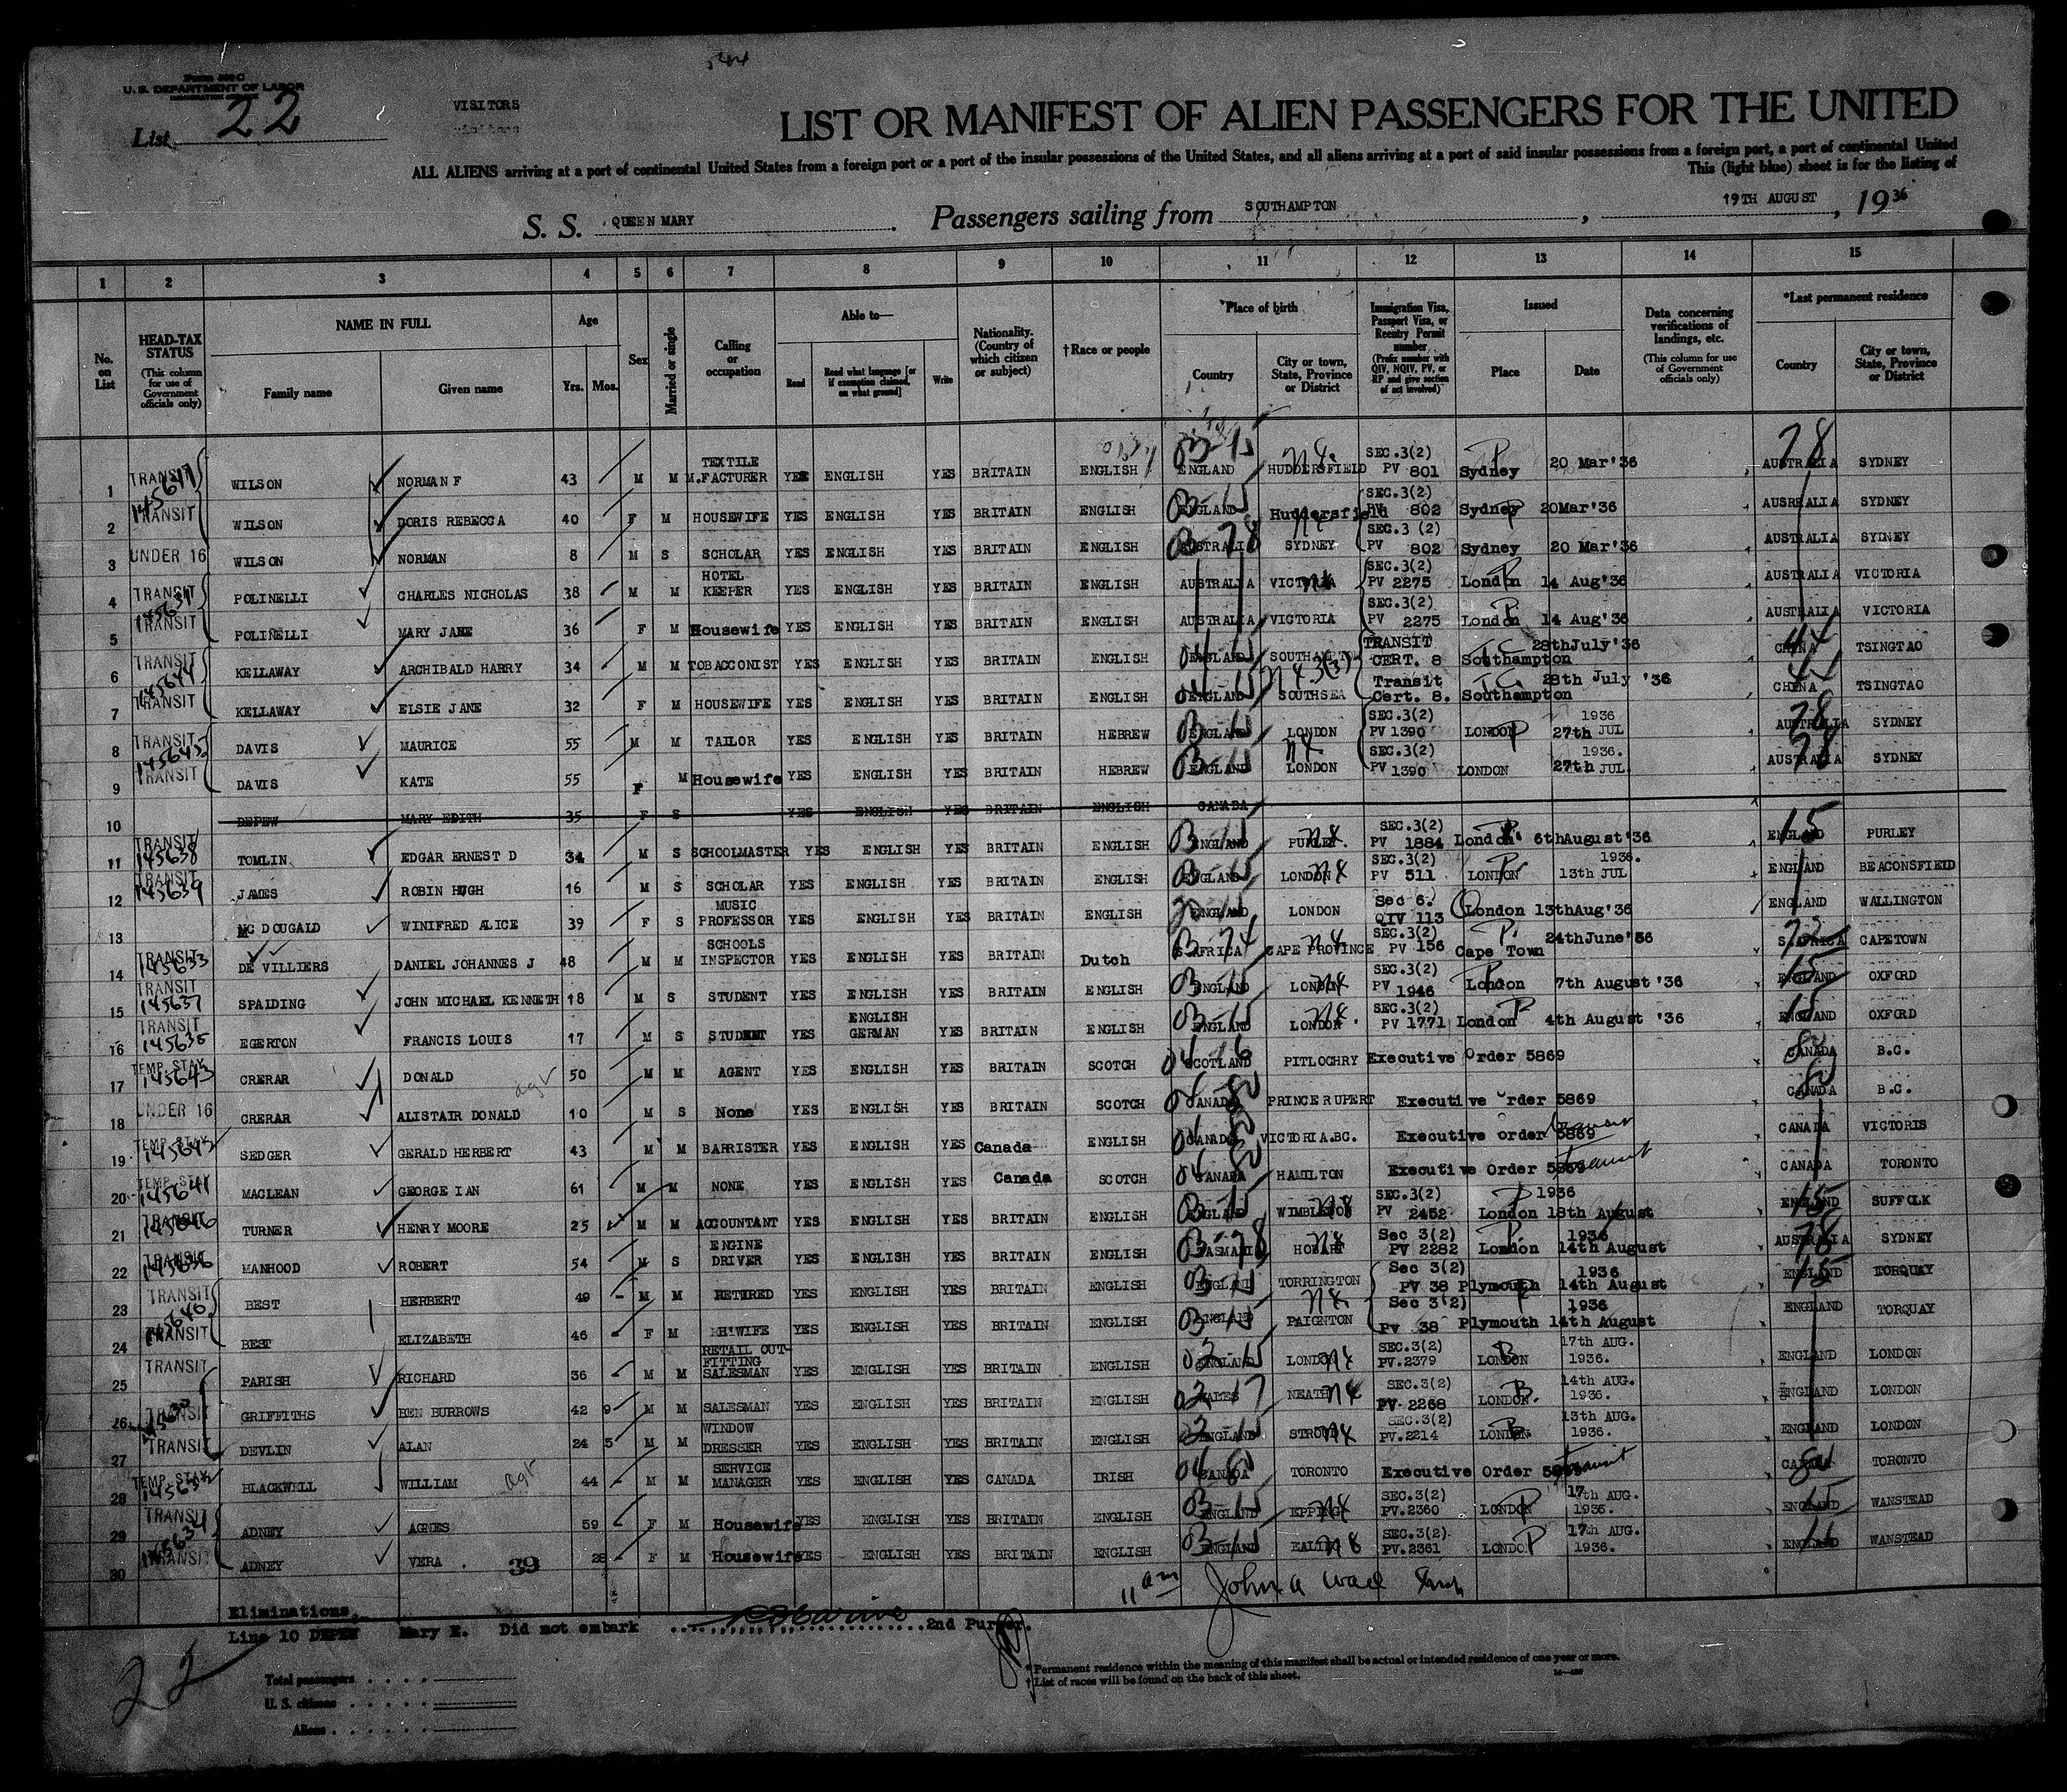 544
Form 500 C
U. S. DEPARTMENT OF LABOR
List 22
VISITORS
LIST OR MANIFEST OF ALIEN PASSENGERS FOR THE UNITED
ALL ALIENS arriving at a port of continental United States from a foreign port or a port of the insular possessions of the United States, and all aliens arriving at a port of said insular possessions from a foreign port, a port of continental United
This (light blue) sheet is for the listing of
S. S. QUEEN MARY Passengers sailing from SOUTHAMPTON, 19TH AUGUST, 1936
1 2 3 4 5 6 7 8 9 10 11 12 13 14 15
No. on List
HEAD-TAX STATUS (This column for use of Government officials only)
NAME IN FULL Family name Given name
Age Yrs. Mos.
Sex
Married or single
Calling or occupation
Able to— Read Read what language [or if exemption claimed, on what ground] Write
Nationality. (Country of which citizen or subject)
†Race or people
*Place of birth Country City or town, State, Province or District
Immigration Visa, Passport Visa, or Reentry Permit number (Prefix number with QIV, NQIV, PV, or RP and give section of act involved)
Issued Place Date
Data concerning verifications of landings, etc. (This column for use of Government officials only)
*Last permanent residence Country City or town, State, Province or District
1 TRANSIT 145647 WILSON NORMAN F 43 M M TEXTILE M.FACTURER YES ENGLISH YES BRITAIN ENGLISH ENGLAND HUDDERSFIELD SEC.3(2) PV 801 Sydney 20 Mar'36 AUSTRALIA SYDNEY
2 TRANSIT WILSON DORIS REBECCA 40 F M HOUSEWIFE YES ENGLISH YES BRITAIN ENGLISH ENGLAND Huddersfield SEC.3(2) PV 802 Sydney 20Mar'36 AUSRRALIA SYDNEY
3 UNDER 16 WILSON NORMAN 8 M S SCHOLAR YES ENGLISH YES BRITAIN ENGLISH AUSTRALIA SYDNEY SEC.3 (2) PV 802 Sydney 20 Mar'36 AUSTRALIA SYDNEY
4 TRANSIT POLINELLI CHARLES NICHOLAS 38 M M HOTEL KEEPER YES ENGLISH YES BRITAIN ENGLISH AUSTRALIA VICTORIA SEC.3(2) PV 2275 London 14 Aug'36 AUSTRALIA VICTORIA
5 TRANSIT POLINELLI MARY JANE 36 F M Housewife YES ENGLISH YES BRITAIN ENGLISH AUSTRALIA VICTORIA SEC.3(2) PV 2275 London 14 Aug'36 AUSTRALIA VICTORIA
6 TRANSIT 145644 KELLAWAY ARCHIBALD HARRY 34 M M TOBACCONIST YES ENGLISH YES BRITAIN ENGLISH ENGLAND SOUTHAMPTON TRANSIT CERT. 8 Southampton 28thJuly'36 CHINA TSINGTAO
7 TRANSIT KELLAWAY ELSIE JANE 32 F M HOUSEWIFE YES ENGLISH YES BRITAIN ENGLISH ENGLAND SOUTHSEA Transit Cert. 8. Southampton 28th July '36 CHINA TSINGTAO
8 TRANSIT DAVIS MAURICE 55 M M TAILOR YES ENGLISH YES BRITAIN HEBREW ENGLAND LONDON SEC.3(2) PV 1390 LONDON 1936 27th JUL AUSTRALIA SYDNEY
9 TRANSIT DAVIS KATE 55 F M Housewife YES ENGLISH YES BRITAIN HEBREW ENGLAND LONDON SEC.3(2) PV 1390 LONDON 1936. 27th JUL. AUSTRALIA SYDNEY
10 DEPEW MARY EDITH 35 F S YES ENGLISH YES BRITAIN ENGLISH CANADA
11 TRANSIT 145638 TOMLIN EDGAR ERNEST D 34 M S SCHOOLMASTER YES ENGLISH YES BRITAIN ENGLISH ENGLAND PURLEY SEC.3(2) PV 1884 London 6thAugust'36 ENGLAND PURLEY
12 TRANSIT 145639 JAMES ROBIN HUGH 16 M S SCHOLAR YES ENGLISH YES BRITAIN ENGLISH ENGLAND LONDON SEC.3(2) PV 511 LONDON 1936. 13th JUL ENGLAND BEACONSFIELD
13 MC DOUGALD WINIFRED ALICE 39 F S MUSIC PROFESSOR YES ENGLISH YES BRITAIN ENGLISH ENGLAND LONDON Sec 6. QIV 113 London 13thAug'36 ENGLAND WALLINGTON
14 TRANSIT 145633 DE VILLIERS DANIEL JOHANNES J 48 M M SCHOOLS INSPECTOR YES ENGLISH YES BRITAIN Dutch S.AFRICA CAPE PROVINCE SEC.3(2) PV 156 Cape Town 24thJune'36 S.AFRICA CAPETOWN
15 TRANSIT 145637 SPALDING JOHN MICHAEL KENNETH 18 M S STUDENT YES ENGLISH YES BRITAIN ENGLISH ENGLAND LONDON SEC.3(2) PV 1946 London 7th August '36 ENGLAND OXFORD
16 TRANSIT 145635 EGERTON FRANCIS LOUIS 17 M S STUDENT YES ENGLISH GERMAN YES BRITAIN ENGLISH ENGLAND LONDON SEC.3(2) PV 1771 London 4th August '36 ENGLAND OXFORD
17 TEMP. STAY 145643 CRERAR DONALD 50 M M AGENT YES ENGLISH YES BRITAIN SCOTCH SCOTLAND PITLOCHRY Executive Order 5869 CANADA B.C.
18 UNDER 16 CRERAR ALISTAIR DONALD 10 M S None YES ENGLISH YES BRITAIN SCOTCH CANADA PRINCE RUPERT Executive Order 5869 CANADA B.C.
19 TEMP. STAY SEDGER GERALD HERBERT 43 M M BARRISTER YES ENGLISH YES Canada ENGLISH CANADA VICTORIA.BC. Executive order 5869 transit CANADA VICTORIS
20 TEMP. STAY 145641 MACLEAN GEORGE IAN 61 M M NONE YES ENGLISH YES Canada SCOTCH CANADA HAMILTON Executive Order 5869 transit CANADA TORONTO
21 TRANSIT TURNER HENRY MOORE 25 M M ACCOUNTANT YES ENGLISH YES BRITAIN ENGLISH ENGLAND WIMBLEDON SEC.3(2) PV 2452 London 1936 18th August ENGLAND SUFFOLK
22 TRANSIT MANHOOD ROBERT 54 M S ENGINE DRIVER YES ENGLISH YES BRITAIN ENGLISH TASMANIA HOBART Sec 3(2) PV 2282 London 1936 14th August AUSTRALIA SYDNEY
23 TRANSIT BEST HERBERT 49 M M RETIRED YES ENGLISH YES BRITAIN ENGLISH ENGLAND TORRINGTON Sec 3(2) PV 38 Plymouth 1936 14th August ENGLAND TORQUAY
24 TRANSIT BEST ELIZABETH 46 F M H'WIFE YES ENGLISH YES BRITAIN ENGLISH ENGLAND PAIGNTON Sec 3(2) PV 38 Plymouth 1936 14th August ENGLAND TORQUAY
25 TRANSIT PARISH RICHARD 36 M M RETAIL OUT-FITTING SALESMAN YES ENGLISH YES BRITAIN ENGLISH ENGLAND LONDON SEC.3(2) PV.2379 LONDON 17th AUG. 1936. ENGLAND LONDON
26 TRANSIT GRIFFITHS BEN BURROWS 42 9 M M SALESMAN YES ENGLISH YES BRITAIN ENGLISH WALES NEATH SEC.3(2) PV. 2268 LONDON. 14th AUG. 1936. ENGLAND LONDON
27 TRANSIT DEVLIN ALAN 24 5 M M WINDOW DRESSER YES ENGLISH YES BRITAIN ENGLISH ENGLAND STROUD SEC.3(2) PV.2214 LONDON 13th AUG. 1936. ENGLAND LONDON
28 TEMP. STAY BLACKWELL WILLIAM 44 M M SERVICE MANAGER YES ENGLISH YES CANADA IRISH CANADA TORONTO Executive Order 5869 transit CANADA TORONTO
29 TRANSIT ADNEY AGNES 59 F M Housewife YES ENGLISH YES BRITAIN ENGLISH ENGLAND EPPING SEC.3(2) PV.2360 LONDON 17th AUG. 1936. ENGLAND WANSTEAD
30 TRANSIT ADNEY VERA 39 28 F M Housewife YES ENGLISH YES BRITAIN ENGLISH ENGLAND EALING SEC.3(2) PV.2361 LONDON 17th AUG. 1936. ENGLAND WANSTEAD
11 am John A
Eliminations
Line 10 DEPEW Mary E. Did not embark 2nd Purser.
22
Total passengers
U. S. citizens
Aliens
* Permanent residence within the meaning of this manifest shall be actual or intended residence of one year or more.
† List of races will be found on the back of this sheet.